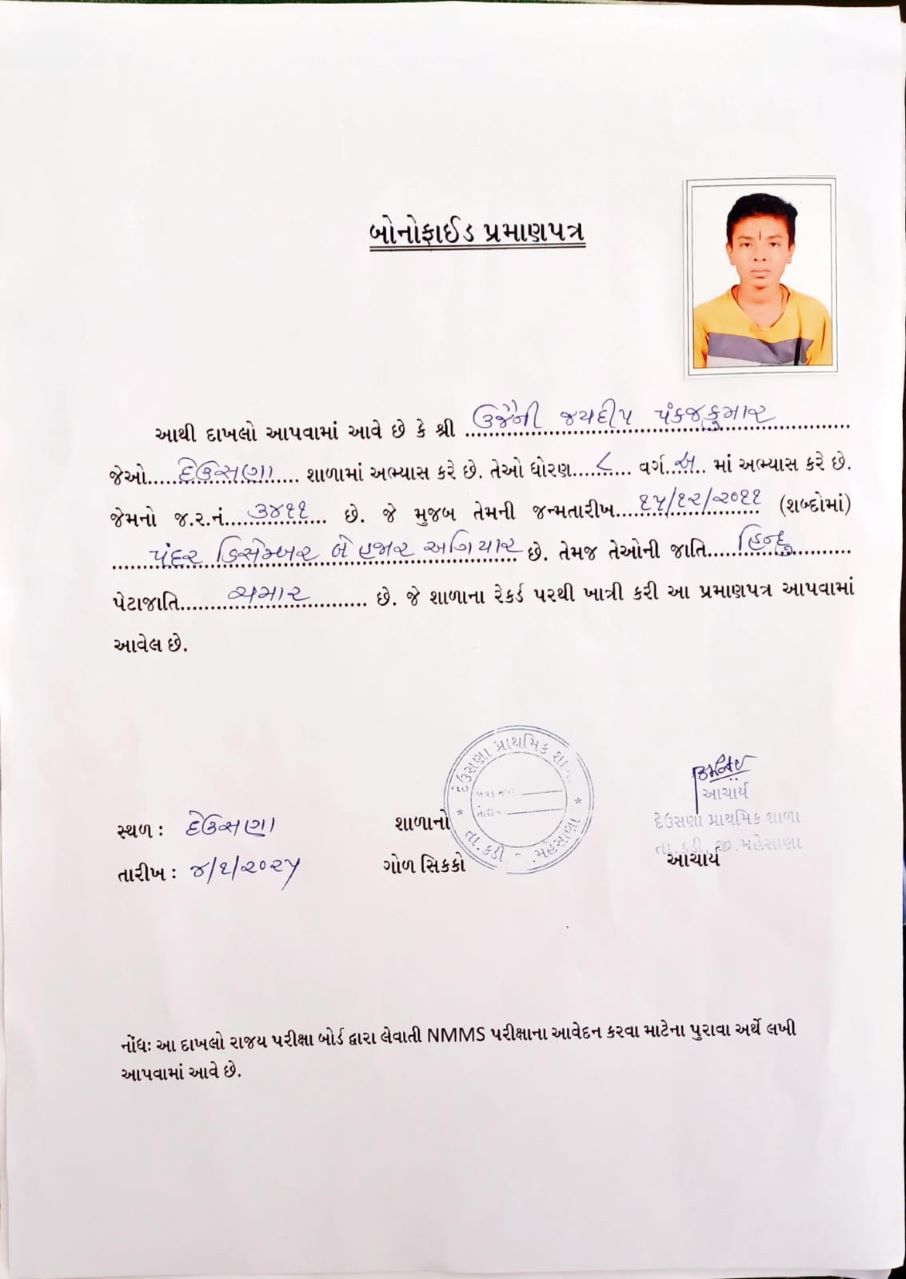 બોનોફાઈડ પ્રમાણપત્ર
આથી દાખલો આપવામાં આવે છે કે શ્રી ઉજૈની જયદીપ પંકજકુમાર
જેઓ.....દેઉસણા..... શાળામાં અભ્યાસ કરે છે. તેઓ ધોરણ....૮.... વર્ગ..અ.. માં અભ્યાસ કરે છે.
જેમનો જ.ર.નં....૩૪૧૧.... છે. જે મુજબ તેમની જન્મતારીખ...૧૫/૧૨/૨૦૧૧... (શબ્દોમાં)
પંદર ડિસેમ્બર બે હજાર અગિયાર છે. તેમજ તેઓની જાતિ.....હિન્દુ.....
પેટાજાતિ.......ચમાર....... છે. જે શાળાના રેકર્ડ પરથી ખાત્રી કરી આ પ્રમાણપત્ર આપવામાં
આવેલ છે.
દેઉસણા પ્રાથમિક શાળા
તા.કડી, જી. મહેસાણા
તારીખ
આચાર્ય
દેઉસણા પ્રાથમિક શાળા
તા.કડી, જી.મહેસાણા
સ્થળ : દેઉસણા શાળાનો
તારીખ : ૪/૧/૨૦૨૫ ગોળ સિક્કો આચાર્ય
નોંધઃ આ દાખલો રાજય પરીક્ષા બોર્ડ દ્વારા લેવાતી NMMS પરીક્ષાના આવેદન કરવા માટેના પુરાવા અર્થે લખી
આપવામાં આવે છે.